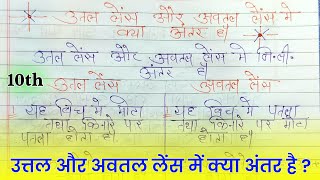 उत्तल लेंस और अवतल लेंस मे
क्या अंतर है।
उत्तल लेंस और अवतल लेंस मे नि.ली.
अंतर है
10th
उत्तल लेंस अवतल लेंस
यह बिच मे मोटा
तथा किनारे पर
पतला होता है।
यह बिच मे पतला
तथा किनारे पर मोटा
होता है।
उत्तल और अवतल लेंस में क्या अंतर है ?